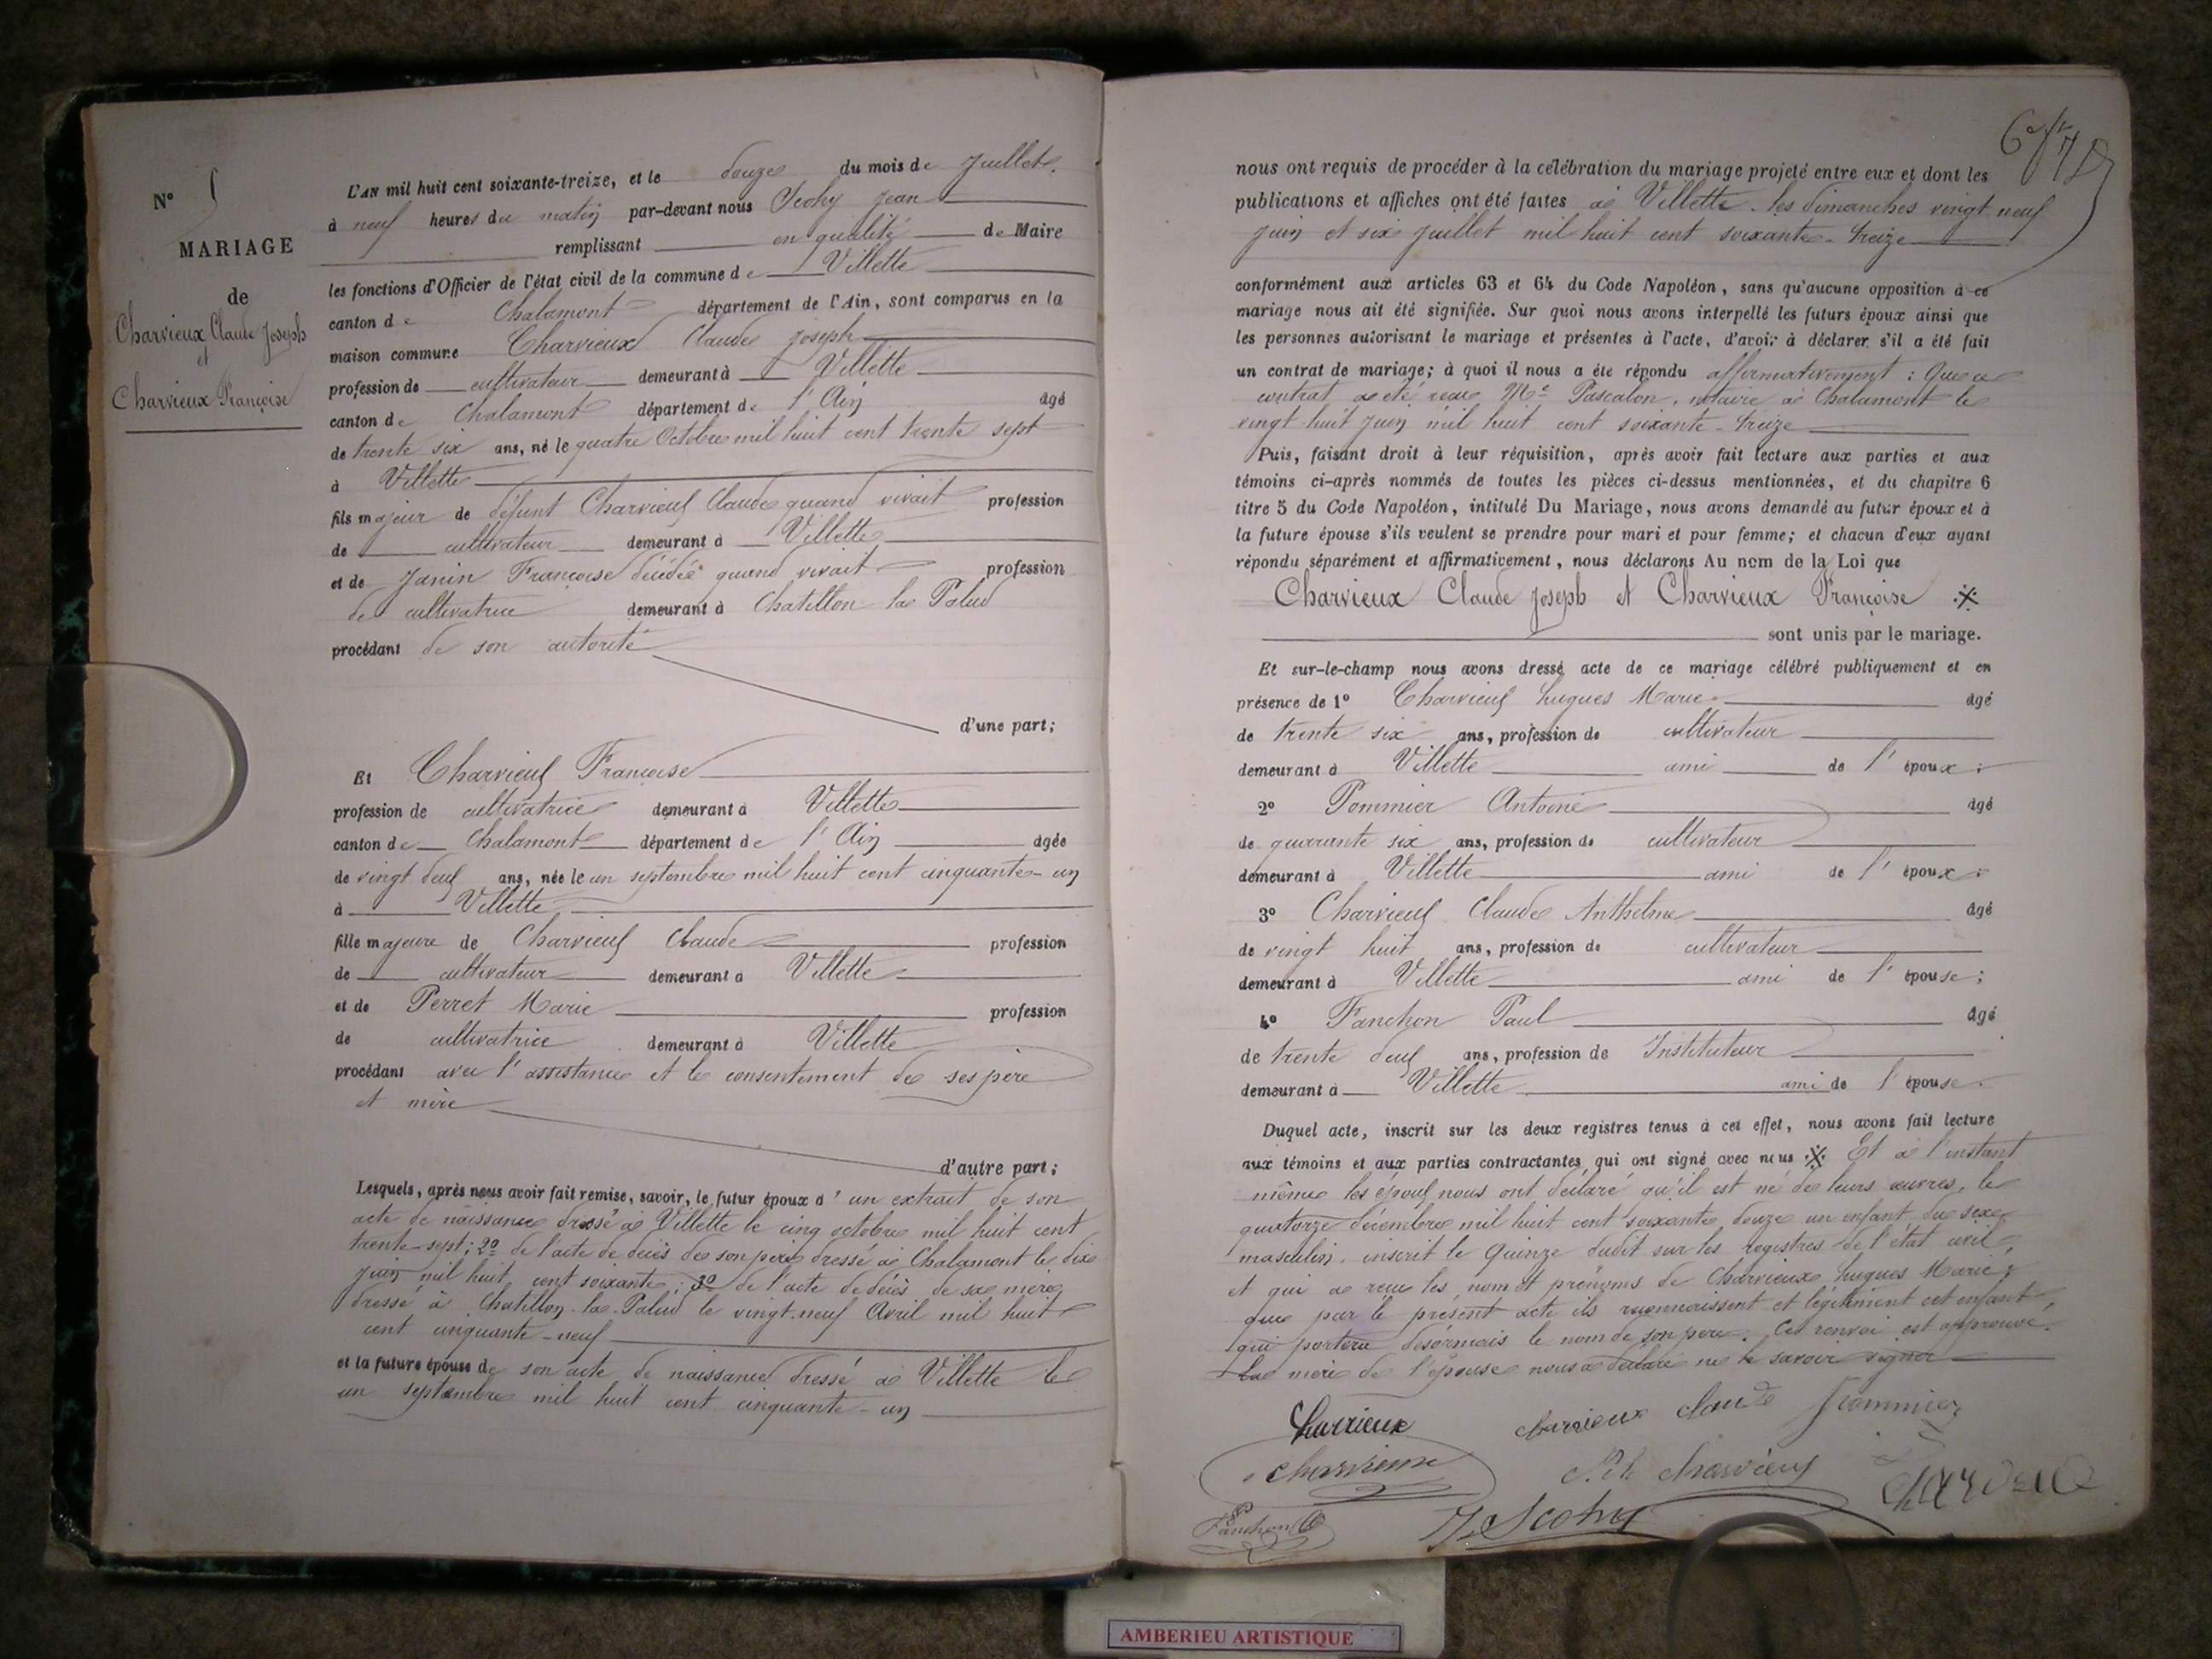 N° 5
MARIAGE
de
Charvieux Claude Joseph
et
Charvieux Françoise
L'AN mil huit cent soixante-treize, et le douze du mois de Juillet,
à neuf heures du matin par-devant nous Scohy Jean
remplissant en qualité de Maire
les fonctions d'Officier de l'état civil de la commune de Villette
canton de Chalamont département de l'Ain, sont comparus en la
maison commune Charvieux Claude Joseph
profession de cultivateur demeurant à Villette
canton de Chalamont département de l'Ain âgé
de trente six ans, né le quatre Octobre mil huit cent trente sept
à Villette
fils majeur de défunt Charvieux Claude quand vivait profession
de cultivateur demeurant à Villette
et de Janin Françoise décédée quand vivait profession
de cultivatrice demeurant à Chatillon la Palud
procédant de son autorité
d'une part;
Et Charvieux Françoise
profession de cultivatrice demeurant à Villette
canton de Chalamont département de l'Ain âgée
de vingt deux ans, née le un septembre mil huit cent cinquante-un
à Villette
fille majeure de Charvieux Claude profession
de cultivateur demeurant à Villette
et de Perret Marie profession
de cultivatrice demeurant à Villette
procédant avec l'assistance et le consentement de ses père
et mère
d'autre part;
Lesquels, après nous avoir fait remise, savoir, le futur époux d'un extrait de son
acte de naissance dressé à Villette le cinq octobre mil huit cent
trente-sept; 2° de l'acte de décès de son père dressé à Chalamont le dix
juin mil huit cent soixante; 3° de l'acte de décès de sa mère
dressé à Chatillon-la-Palud le vingt-neuf Avril mil huit
cent cinquante-neuf
et la future épouse de son acte de naissance dressé à Villette le
un septembre mil huit cent cinquante-un
nous ont requis de procéder à la célébration du mariage projeté entre eux et dont les
publications et affiches ont été faites à Villette les dimanches vingt neuf
juin et six juillet mil huit cent soixante-treize
conformément aux articles 63 et 64 du Code Napoléon, sans qu'aucune opposition à ce
mariage nous ait été signifiée. Sur quoi nous avons interpellé les futurs époux ainsi que
les personnes autorisant le mariage et présentes à l'acte, d'avoir à déclarer s'il a été fait
un contrat de mariage; à quoi il nous a été répondu affirmativement: Que ce
contrat a été reçu Me Pascalon, notaire à Chalamont le
vingt huit juin mil huit cent soixante-treize
Puis, faisant droit à leur réquisition, après avoir fait lecture aux parties et aux
témoins ci-après nommés de toutes les pièces ci-dessus mentionnées, et du chapitre 6
titre 5 du Code Napoléon, intitulé Du Mariage, nous avons demandé au futur époux et à
la future épouse s'ils veulent se prendre pour mari et pour femme; et chacun d'eux ayant
répondu séparément et affirmativement, nous déclarons Au nom de la Loi que
Charvieux Claude Joseph et Charvieux Françoise ※
sont unis par le mariage.
Et sur-le-champ nous avons dressé acte de ce mariage célébré publiquement et en
présence de 1° Charvieux hugues Marie âgé
de trente six ans, profession de cultivateur
demeurant à Villette ami de l'époux;
2° Pommier Antoine âgé
de quarante six ans, profession de cultivateur
demeurant à Villette ami de l'époux;
3° Charvieux Claude Anthelme âgé
de vingt huit ans, profession de cultivateur
demeurant à Villette ami de l'épouse;
4° Fanchon Paul âgé
de trente deux ans, profession de Instituteur
demeurant à Villette ami de l'épouse.
Duquel acte, inscrit sur les deux registres tenus à cet effet, nous avons fait lecture
aux témoins et aux parties contractantes qui ont signé avec nous ※ Et à l'instant
même les époux nous ont déclaré qu'il est né de leurs œuvres, le
quatorze décembre mil huit cent soixante douze un enfant du sexe
masculin, inscrit le Quinze dudit sur les registres de l'état civil,
et qui a reçu les nom et prénoms de Charvieux hugues Marie;
que par le présent acte ils reconnaissent et légitiment cet enfant,
qui portera désormais le nom de son père. Ce renvoi est approuvé.
La mère de l'épouse nous a déclaré ne le savoir signer
Charvieux
charvieux claude
Pommier
Charvieux
charvieux
Fanchon
J. Scohy
AMBERIEU ARTISTIQUE